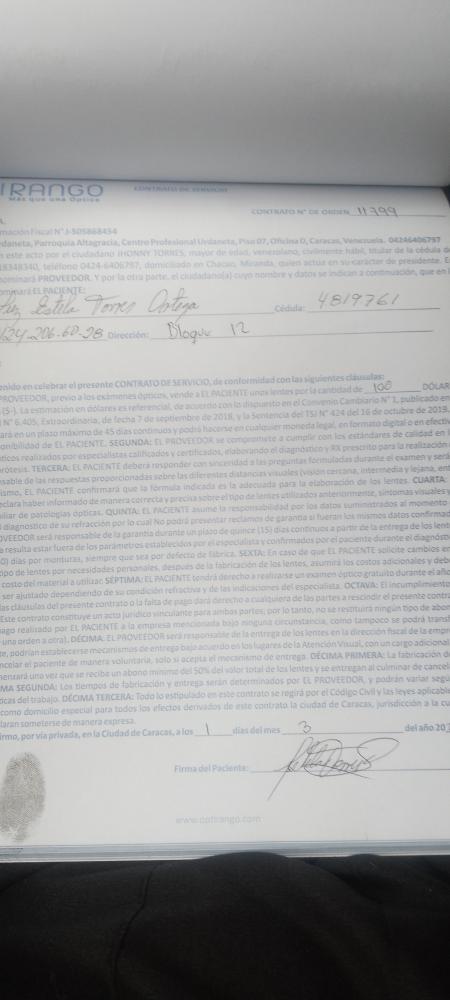 IRANGO
Más que una Óptica
CONTRATO DE SERVICIO
CONTRATO N° DE ORDEN 11799
A.
rmación Fiscal N° J-505868434
rdaneta, Parroquia Altagracia, Centro Profesional Urdaneta, Piso 07, Oficina D, Caracas, Venezuela. 04246406797
n este acto por el ciudadano JHONNY TORRES, mayor de edad, venezolano, civilmente hábil, titular de la cédula de
18348340, teléfono 0424-6406797, domiciliado en Chacao, Miranda, quien actua en su carácter de presidente. E
nominará PROVEEDOR. Y por la otra parte, el ciudadano(a) cuyo nombre y datos se indican a continuación, que en l
ominará EL PACIENTE:
Luz Estela Torres Ortega Cédula: 4819761
424-206-60-28 Dirección: Bloque 12
:
enido en celebrar el presente CONTRATO DE SERVICIO, de conformidad con las siguientes cláusulas:
PROVEEDOR, previo a los exámenes ópticos, vende a EL PACIENTE unos lentes por la cantidad de 100 DÓLAR
(S-). La estimación en dólares es referencial, de acuerdo con lo dispuesto en el Convenio Cambiario N° 1, publicado en
l N° 6.405, Extraordinaria, de fecha 7 de septiembre de 2018, y la Sentencia del TSJ N° 424 del 16 de octubre de 2019.
ará en un plazo máximo de 45 días continuos y podrá hacerse en cualquier moneda legal, en formato digital o en efectiv
ponibilidad de EL PACIENTE. SEGUNDA: EL PROVEEDOR se compromete a cumplir con los estándares de calidad en l
ticos realizados por especialistas calificados y certificados, elaborando el diagnóstico y RX prescrito para la realización
prótesis. TERCERA: EL PACIENTE deberá responder con sinceridad a las preguntas formuladas durante el examen y será
nsable de las respuestas proporcionadas sobre las diferentes distancias visuales (visión cercana, intermedia y lejana, ent
ismo, EL PACIENTE confirmará que la fórmula indicada es la adecuada para la elaboración de los lentes. CUARTA:
eclara haber informado de manera correcta y precisa sobre el tipo de lentes utilizados anteriormente, síntomas visuales y
iliar de patologías ópticas. QUINTA: EL PACIENTE asume la responsabilidad por los datos suministrados al momento
l diagnostico de su refracción por lo cual No podrá presentar reclamos de garantía si fueran los mismos datos confirmad
OVEEDOR será responsable de la garantía durante un plazo de quince (15) días continuos a partir de la entrega de los lent
a resulta estar fuera de los parámetros establecidos por el especialista y confirmados por el paciente durante el diagnóstic
0) días por monturas, siempre que sea por defecto de fábrica. SEXTA: En caso de que EL PACIENTE solicite cambios en
ipo de lentes por necesidades personales, después de la fabricación de los lentes, asumirá los costos adicionales y deb
costo del material a utilizar. SÉPTIMA: EL PACIENTE tendrá derecho a realizarse un examen óptico gratuito durante el año
ser ajustado dependiendo de su condición refractiva y de las indicaciones del especialista. OCTAVA: El incumplimiento
las cláusulas del presente contrato o la falta de pago dará derecho a cualquiera de las partes a rescindir el presente contra
Este contrato constituye un acto jurídico vinculante para ambas partes; por lo tanto, no se restituirá ningún tipo de abon
pago realizado por EL PACIENTE a la empresa mencionada bajo ninguna circunstancia, como tampoco se podrá transf
una orden a otra). DÉCIMA: EL PROVEEDOR será responsable de la entrega de los lentes en la dirección fiscal de la empr
te, podrían establecerse mecanismos de entrega bajo acuerdo en los lugares de la Atención Visual, con un cargo adicion
ncelar el paciente de manera voluntaria, solo si acepta el mecanismo de entrega. DÉCIMA PRIMERA: La fabricación d
enzará una vez que se reciba un abono mínimo del 50% del valor total de los lentes y se entregan al culminar de cancel
MA SEGUNDA: Los tiempos de fabricación y entrega serán determinados por EL PROVEEDOR, y podrán variar segú
ticas del trabajo. DÉCIMA TERCERA: Todo lo estipulado en este contrato se regirá por el Código Civil y las leyes aplicable
como domicilio especial para todos los efectos derivados de este contrato la ciudad de Caracas, jurisdicción a la cu
laran someterse de manera expresa.
irmo, por vía privada, en la Ciudad de Caracas, a los 1 días del mes 3 del año 202
Firma del Paciente:
www.optirango.com